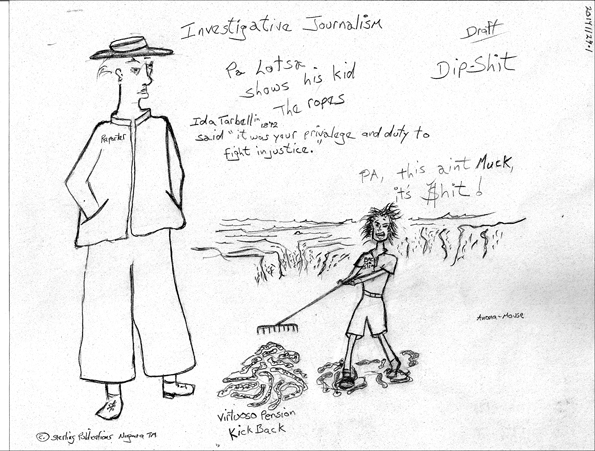 2014/11/29-1
Investigative Journalism
Draft
Dip-Shit
Pa Lotsa
shows his kid
The ropes
Ida Tarbell in 1872
said "it was your privalege and duty to
fight injustice."
PA, this aint Muck,
it's $hit!
Reporter
Anona-Mouse
Virtuoso Pension
KickBack
© Sterling Publications Niagara TM